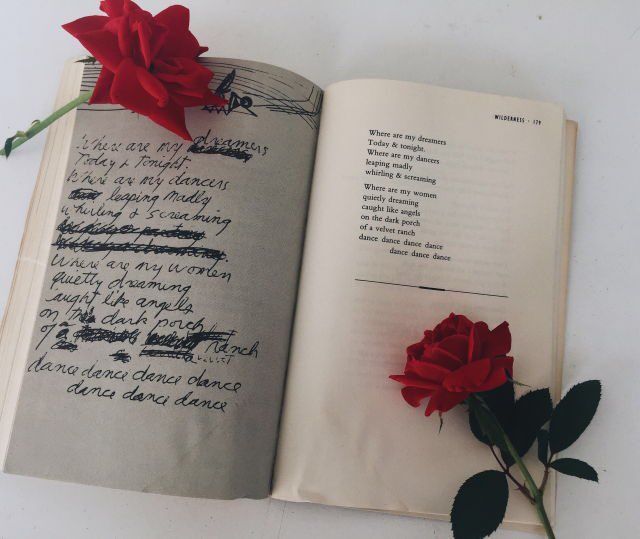 Where are my dreamers
Today & Tonight.
Where are my dancers
leaping madly
whirling & screaming
Where are my women
quietly dreaming
caught like angels
on the dark porch
of a velvet ranch
dance dance dance dance
dance dance dance
WILDERNESS · 179
Where are my dreamers
Today & tonight.
Where are my dancers
leaping madly
whirling & screaming
Where are my women
quietly dreaming
caught like angels
on the dark porch
of a velvet ranch
dance dance dance dance
dance dance dance